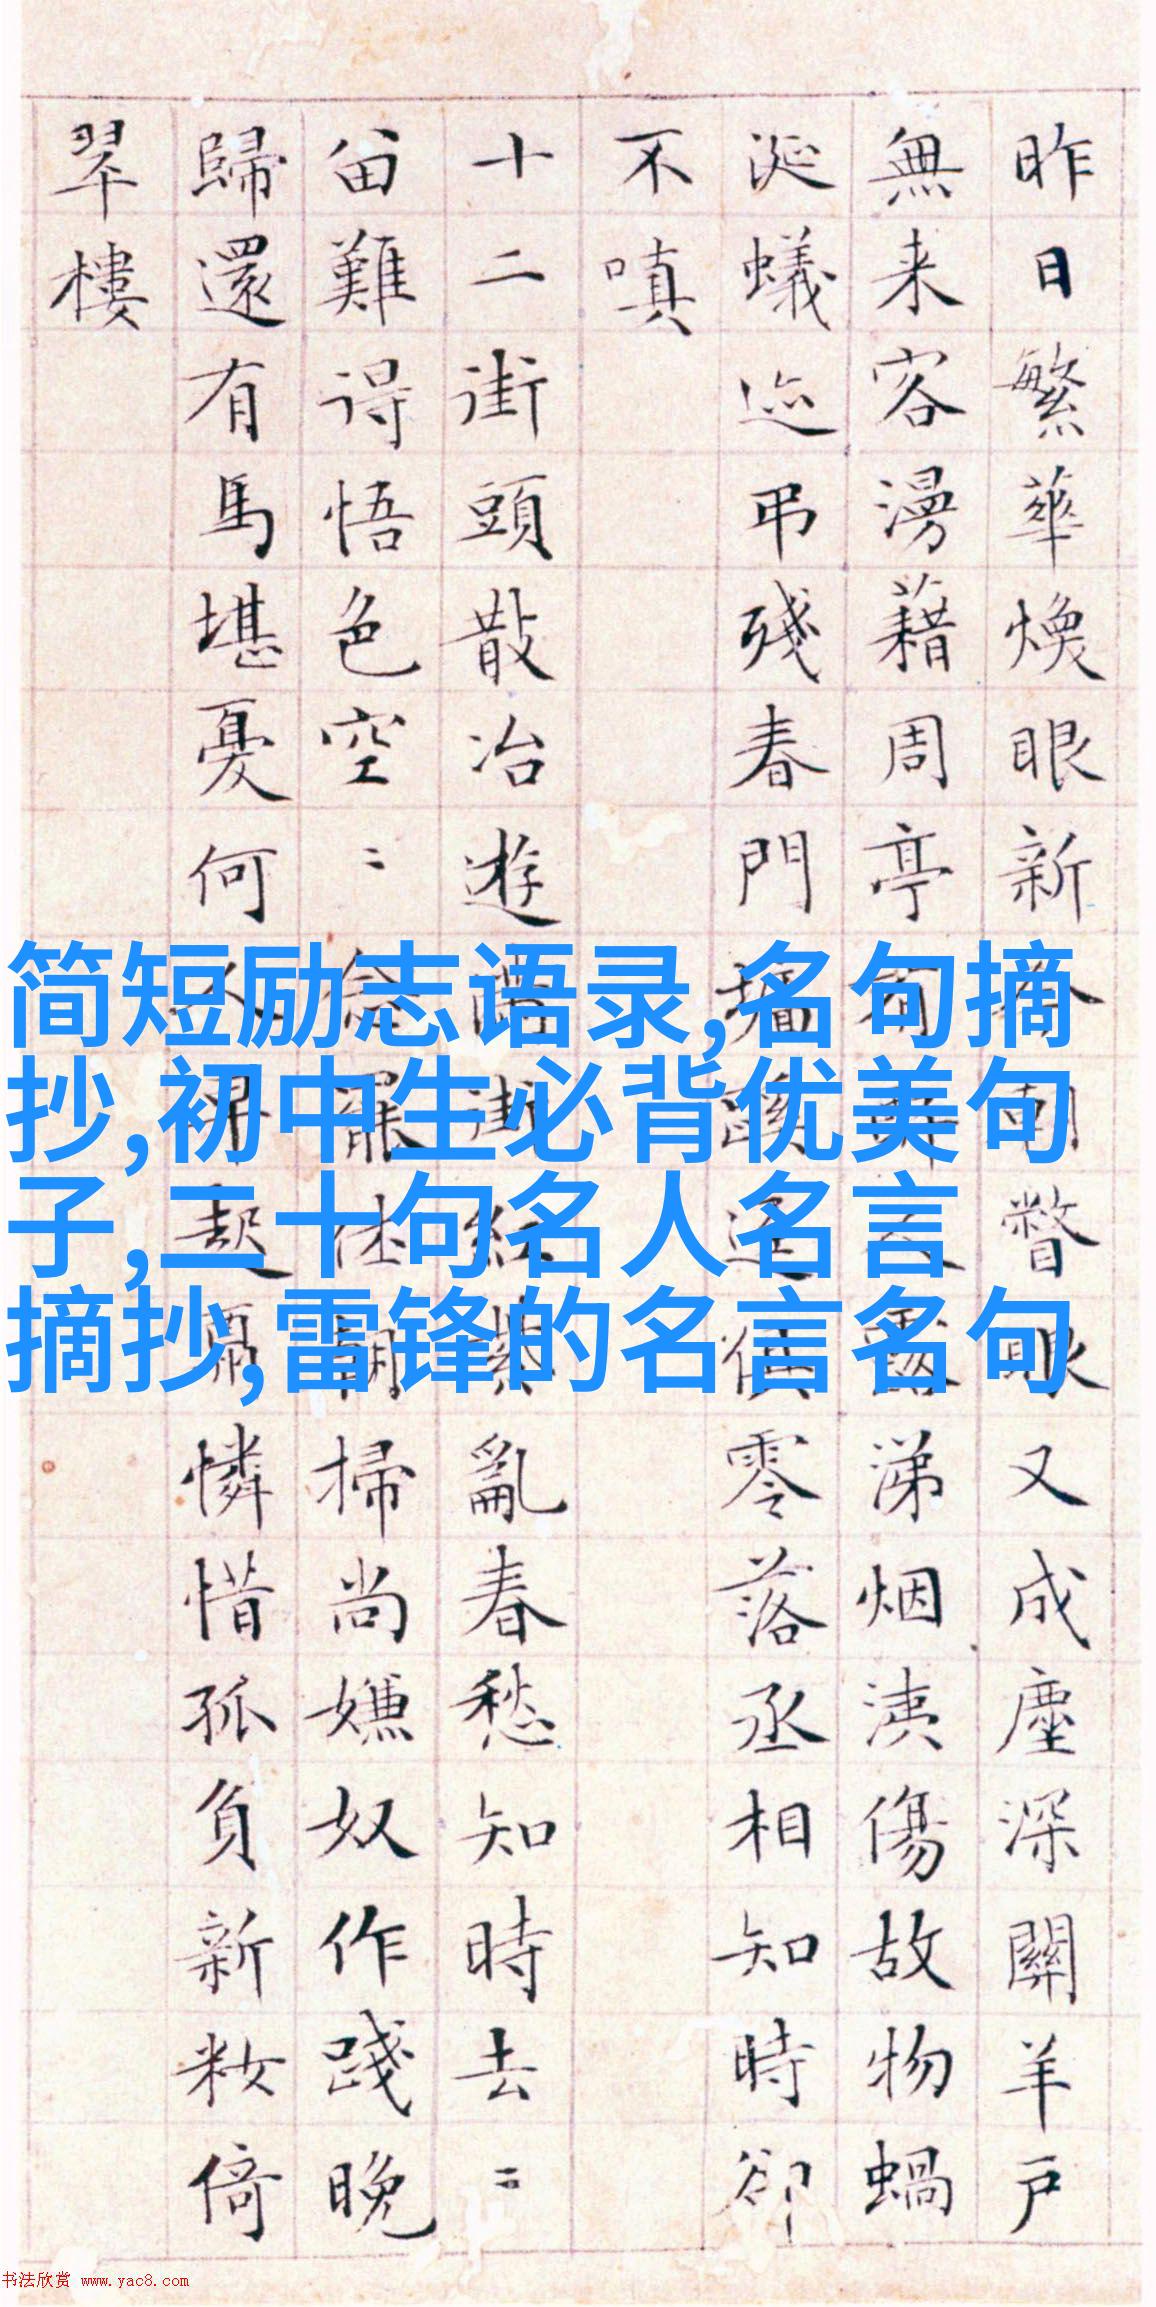 昨日繁華煥眼新
瞥眼又成塵深關羊戶
無来客漫藉周亭
涕烟洟傷故物蝸
涎蟻迹弔殘春門
零落丞相知時卻
不嗔
十二街頭散冶遊
亂春愁知時去〻
留難得悟色空〻
掃尚嫌奴作踐晚
歸還有馬堪憂何
憐惜孤負新妝倚
翠樓
简短励志语录,名句摘
抄,初中生必背优美句
子,二十句名人名言
摘抄,雷锋的名言名句
书法欣赏 www.yac8.com